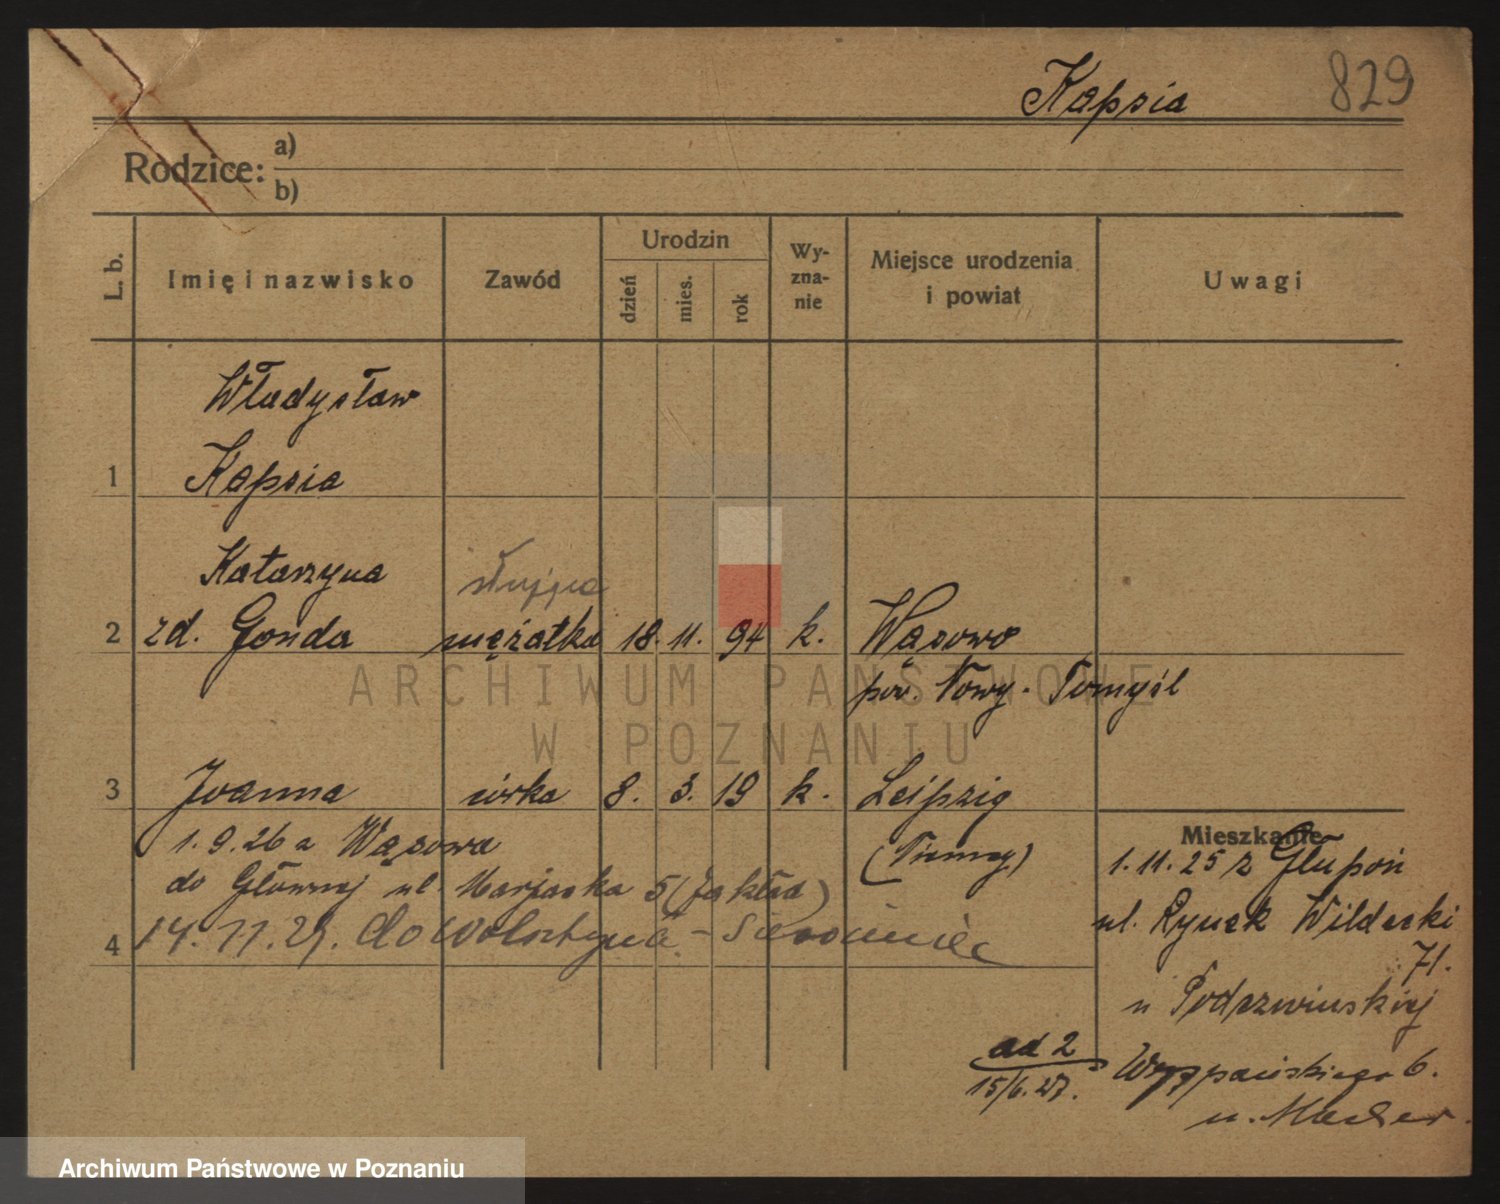 829
Kapsia
Rodzice: a)
b)
L. b.
Imię i nazwisko
Zawód
Urodzin
dzień
mies.
rok
Wy-
zna-
nie
Miejsce urodzenia
i powiat
Uwagi
Władysław
1 Kapsia
Katarzyna służąca
2 zd. Gonda mężatka 18. 11. 94 k. Wąsowo
pow. Nowy-Tomyśl
3 Joanna córka 8. 3. 19 k. Leipzig
(Niemcy)
1.9.26 z Wąsowa
do Głównej ul. Marjacka 5 (Zakład)
4 14.11.29. do Wolsztyna - Sierociniec
Mieszkanie
1.11.25 z Głuponi
ul. Rynek Wildecki
71.
u
ad 2
15/6.27.
Wyspiańskiego 6.
u.
ARCHIWUM PAŃSTWOWE
W POZNANIU
Archiwum Państwowe w Poznaniu